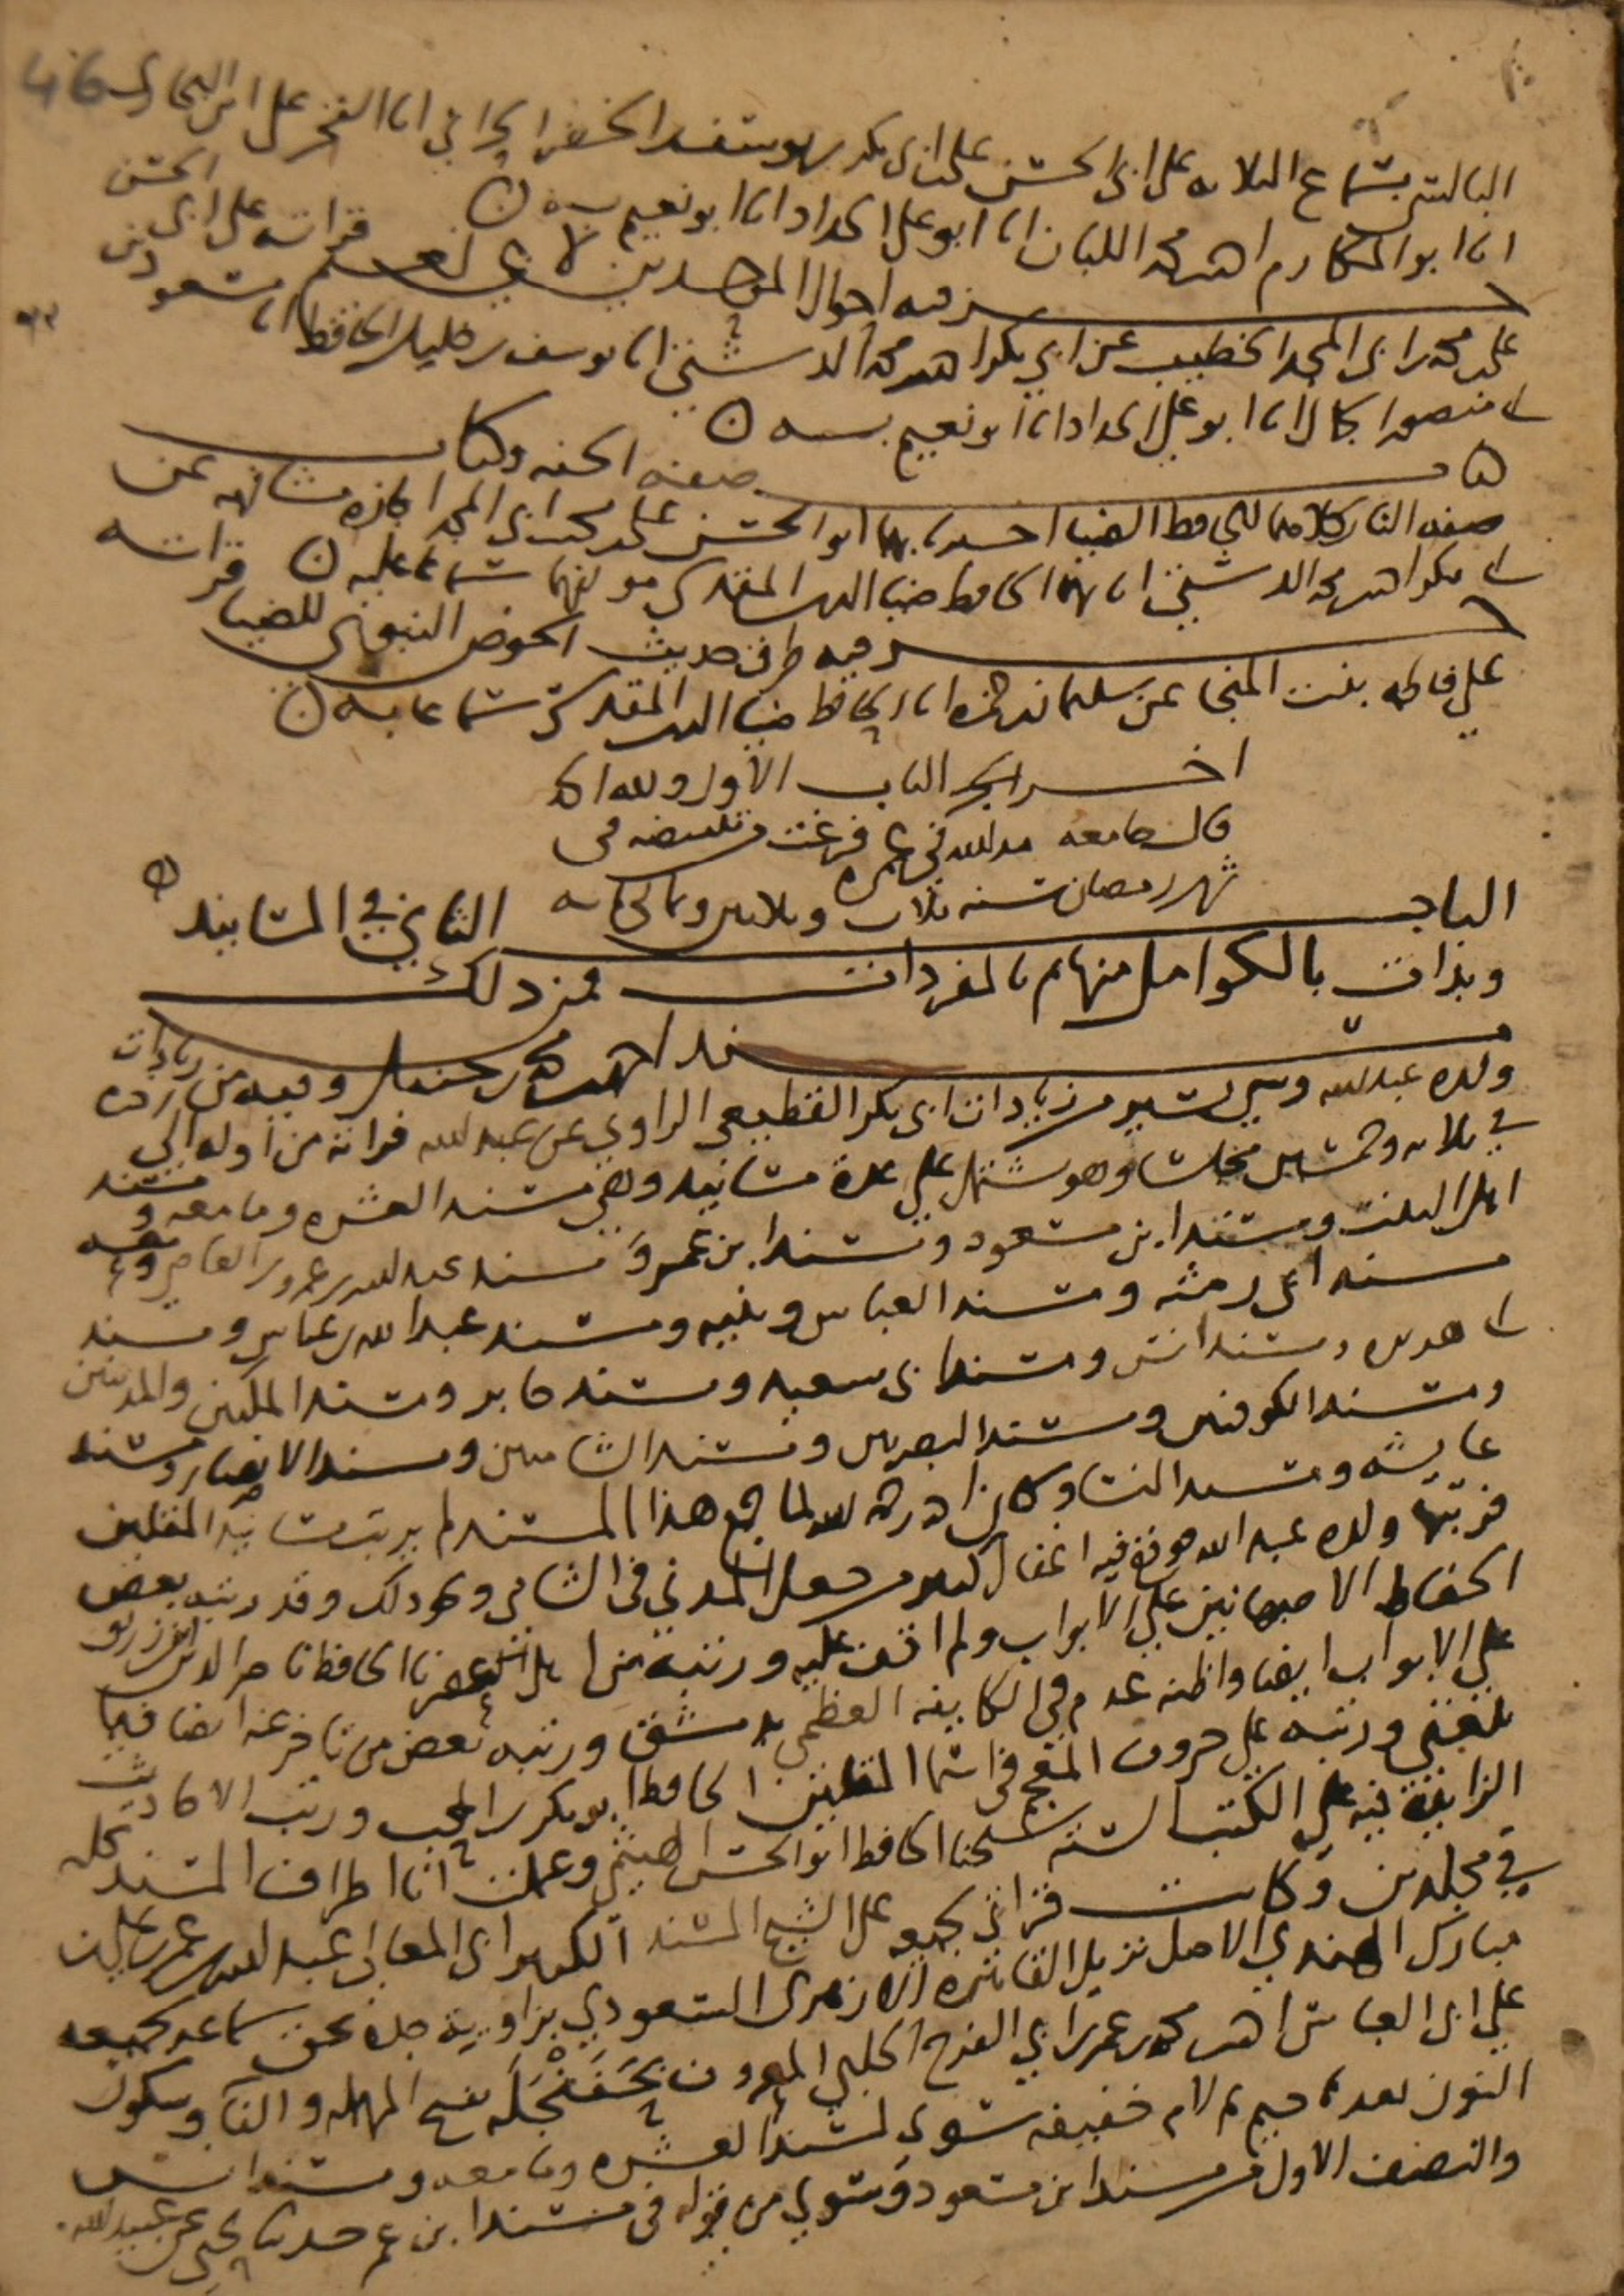 46
البالسي بسماع الثلاثة على ابي الحسن علي ابي بكر بن يوسف الخضر الحراني انا الفخر علي ابن البخاري
انا ابو المكارم احمد بن محمد اللبان انا ابو علي الحداد انا ابو نعيم به
جزء فيه احوال الموحدين لابي نعيم قراته على ابي الحسن
علي بن محمد بن ابي المجد الخطيب عن ابي بكر احمد بن محمد الدشتي انا يوسف بن خليل الحافظ انا مسعود بن
ابي منصور الجمال انا ابو علي الحداد انا ابو نعيم بسنده
كتاب صفة الجنة وكتاب
صفة النار كلاهما للحافظ الضيا اخبرنا بهما ابو الحسن علي بن محمد بن ابي المجد اجازة مشافهة عن
ابي بكر احمد بن محمد الدشتي انا بهما الحافظ ضيا الدين المقدسي مولفهما سماعا عليه
جزء فيه طرق حديث الحوض النبوي للضيا قراته
على فاطمة بنت المنجا عن سليمان بن حمزة انا الحافظ ضيا الدين المقدسي سماعا به
اخر الباب الاول ولله الحمد
قال جامعه مد الله في عمره فرغت من تبييضه في
شهر رمضان سنة ثلاث وثلاثين وثماني مائة
الباب الثاني في المسانيد
وبدات بالكوامل منها ثم بالمفردات فمن ذلك
مسند احمد بن محمد بن حنبل وفيه من زيادات
ولده عبد الله وشي يسير من زيادات ابي بكر القطيعي الراوي عن عبد الله قراته من اوله الى اخره
في ثلاثة وخمسين مجلسا وهو مشتمل على عدة مسانيد وهي مسند العشرة وما معه ومسند
اهل البيت ومسند ابن مسعود ومسند ابن عمر ومسند عبد الله بن عمرو بن العاص ومعه
مسند ابي رمثة ومسند العباس وبنيه ومسند عبد الله بن عباس ومسند
ابي هريرة ومسند انس ومسند ابي سعيد ومسند جابر ومسند المكيين والمدنيين
ومسند الكوفيين ومسند البصريين ومسند الشاميين ومسند الانصار ومسند
عايشة ومسند النسا وكان احمد رحمه الله لما جمع هذا المسند لم يرتب مسانيد المقلين
فرتبها ولده عبد الله فوقع فيه اغفال كبير من جعل المدني في الشامي ونحو ذلك وقد رتبه بعض
الحفاظ الاصبهانيين على الابواب ولم اقف عليه ورتبه من اهل عصرنا الحافظ ناصر الدين ابن زريق
على الابواب ايضا واظنه عدم في الكاينة العظمى بدمشق ورتبه بعض من تاخر عنه ايضا فيما
بلغني ورتبه على حروف المعجم في اسما المقلين الحافظ ابو بكر بن المحب ورتب الاحاديث
الزايدة فيه على الكتب الستة شيخنا الحافظ ابو الحسن الهيثمي وعملت انا اطراف المسند كله
في مجلدين وكانت قراتي لجميعه على الشيخ المسند الكبير ابي المعالي عبد الله بن عمر بن علي بن
مبارك الهندي الاصل نزيل القاهرة الازهري السعودي بزاوية جده بحق سماعه لجميعه
على ابي العباس احمد بن محمد بن عمر بن ابي الفرج الحلبي المعروف بحَفَنْجَلَه بفتح المهملة والفا وسكون
النون بعدها جيم ثم لام خفيفة سوى لمسند العشرة وما معه ومسند انس
والنصف الاول من مسند ابن مسعود وسوى من قوله في مسند ابن عمر حدثنا يحيى عن عبيد الله